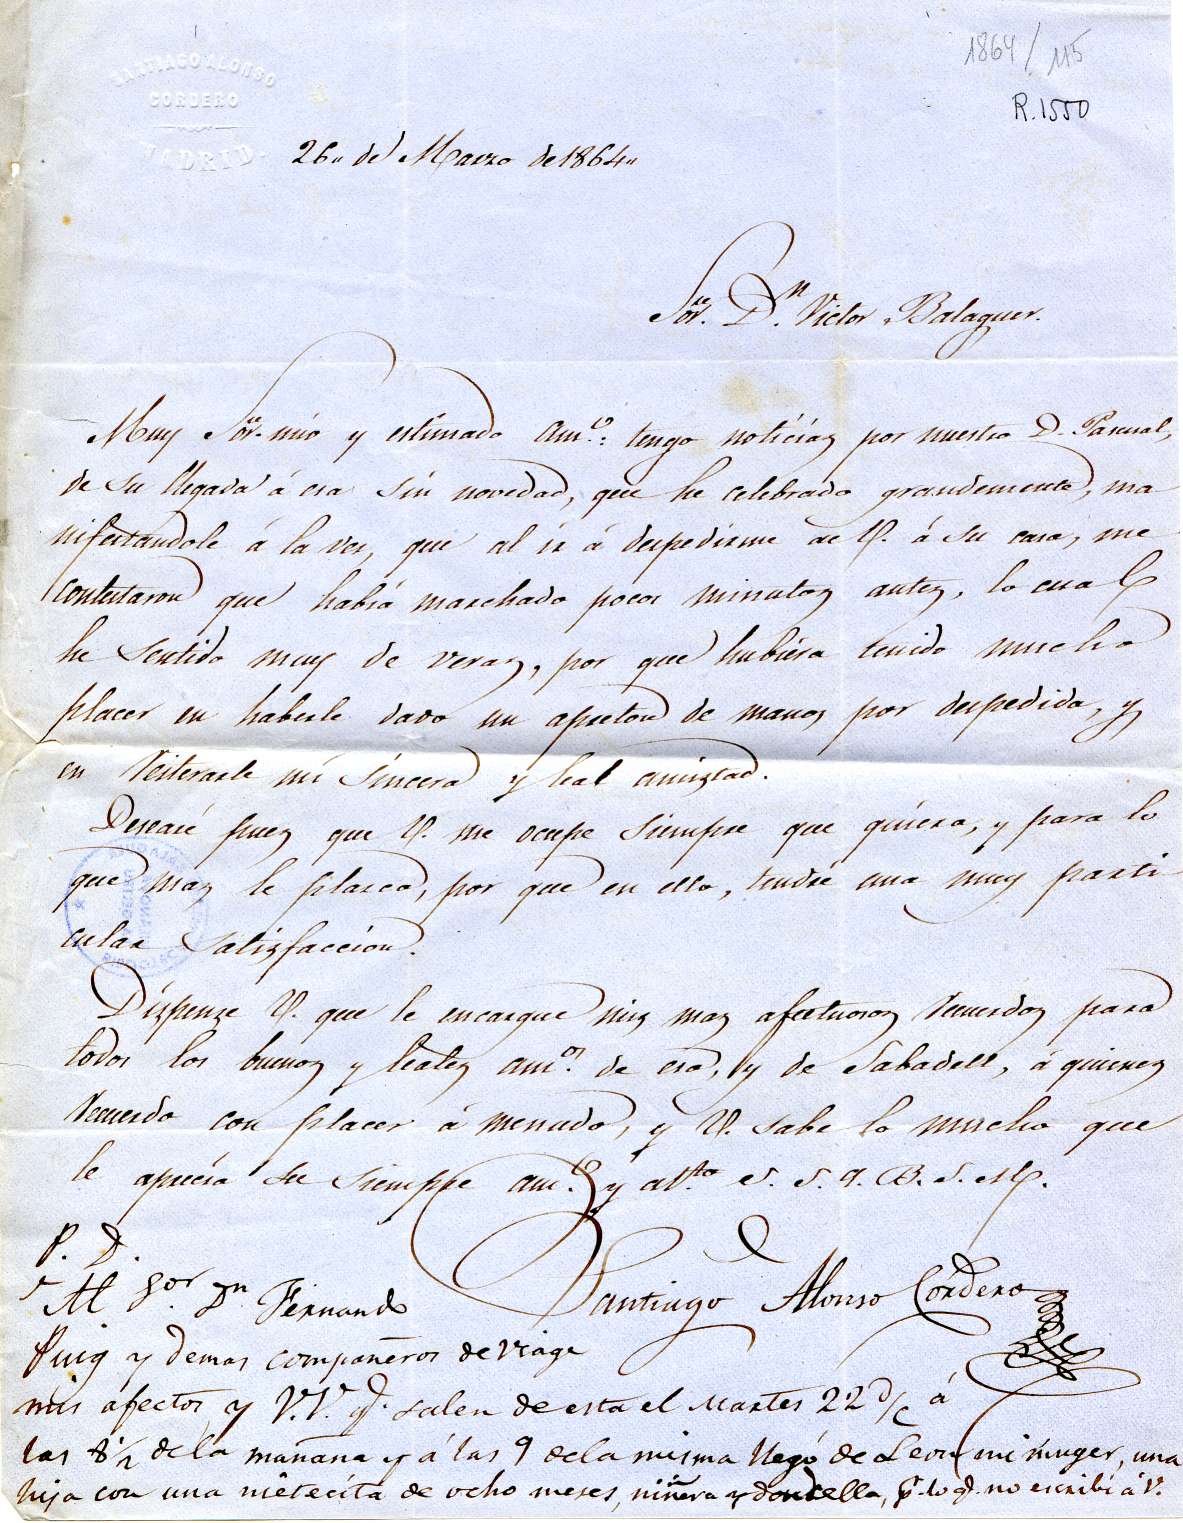 1864/115
R.1550
SANTIAGO ALONSO
CORDERO
MADRID.
26,, de Marzo de 1864,,
Sor. Dn. Victor Balaguer.
Muy Sor. mio y estimado Amo.: tengo noticias por nuestro D. Pascual,
de su llegada á esa sin novedad, que he celebrado grandemente, ma
nifestandole á la vez, que al ir á despedirme de V. á su casa, me
contestaron que habia marchado pocos minutos antes, lo cual
he sentido muy de veras, por que hubiera tenido mucho
placer en haberle dado un apreton de manos por despedida, y
en reiterarle mi sincera y leal amistad.
Desearé pues que V. me ocupe siempre que quiera, y para lo
que mas le plazca, por que en ello, tendré una muy parti
cular satisfaccion.
Dispense V. que le encargue mis mas afectuosos recuerdos para
todos los buenos y leales amos. de esa, y de Sabadell, á quienes
recuerdo con placer á menudo, y V. sabe lo mucho que
le aprecia su siempre amo. y atto. S. S. q. B. S. M.
Santiago Alonso Cordero
P. D.
Al Sor. Dn Fernando
Puig y demas compañeros de viage
mis afectos, y V.V. q. salen de esta el Martes 22 d/c á
las 8 1/2 de la mañana y á las 9 de la misma llegó de Leon mi muger, una
hija con una nietecita de ocho meses, niñera y doncella, p. lo q. no escribi á V.